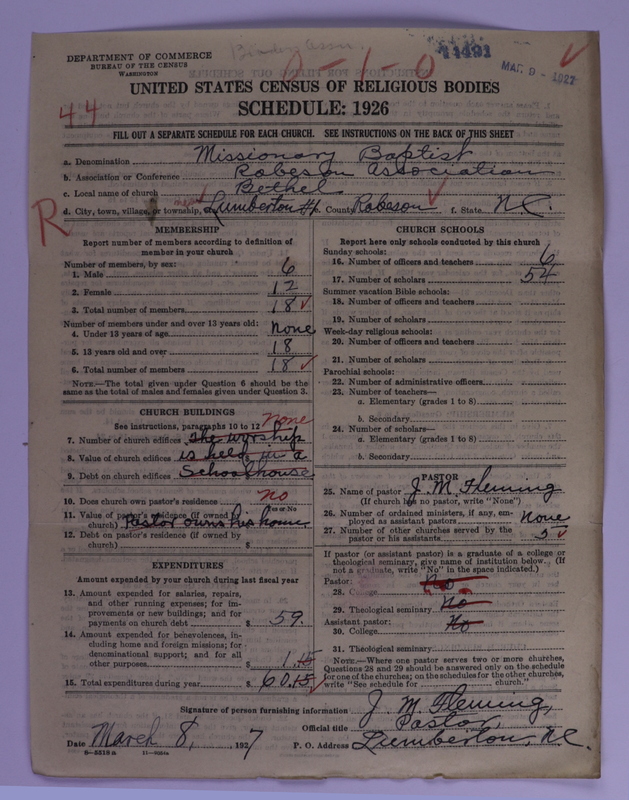 DEPARTMENT OF COMMERCE
BUREAU OF THE CENSUS
WASHINGTON
14491
MAR 9 - 1927
0-1-0
44
R
UNITED STATES CENSUS OF RELIGIOUS BODIES
SCHEDULE: 1926
FILL OUT A SEPARATE SCHEDULE FOR EACH CHURCH. SEE INSTRUCTIONS ON THE BACK OF THIS SHEET
a. Denomination Missionary Baptist
b. Association or Conference Robeson Association
c. Local name of church Bethel
d. City, town, village, or township, near Lumberton County Robeson f. State N.C.
MEMBERSHIP
Report number of members according to definition of
member in your church
Number of members, by sex:
1. Male 6
2. Female 12
3. Total number of members 18
Number of members under and over 13 years old:
4. Under 13 years of age None
5. 13 years old and over 18
6. Total number of members 18
NOTE.—The total given under Question 6 should be the
same as the total of males and females given under Question 3.
CHURCH BUILDINGS
See instructions, paragraphs 10 to 12 none
7. Number of church edifices the worship
8. Value of church edifices $ is held in a
9. Debt on church edifices $ School house
10. Does church own pastor's residence? no
Yes or No
11. Value of pastor's residence (if owned by
church) Pastor owns his home
12. Debt on pastor's residence (if owned by
church) $
EXPENDITURES
Amount expended by your church during last fiscal year
13. Amount expended for salaries, repairs,
and other running expenses; for im-
provements or new buildings; and for
payments on church debt $ 59.
14. Amount expended for benevolences, in-
cluding home and foreign missions; for
denominational support; and for all
other purposes $ 1.15
15. Total expenditures during year $ 60.15
CHURCH SCHOOLS
Report here only schools conducted by this church
Sunday schools:
16. Number of officers and teachers 6
17. Number of scholars 54
Summer vacation Bible schools:
18. Number of officers and teachers
19. Number of scholars
Week-day religious schools:
20. Number of officers and teachers
21. Number of scholars
Parochial schools:
22. Number of administrative officers
23. Number of teachers—
a. Elementary (grades 1 to 8)
b. Secondary
24. Number of scholars—
a. Elementary (grades 1 to 8)
b. Secondary
PASTOR
25. Name of pastor J. M. Fleming
(If church has no pastor, write "None")
26. Number of ordained ministers, if any, em-
ployed as assistant pastors None
27. Number of other churches served by the
pastor or his assistants 5
If pastor (or assistant pastor) is a graduate of a college or
theological seminary, give name of institution below. (If
not a graduate, write "No" in the space indicated.)
Pastor:
28. College No
29. Theological seminary No
Assistant pastor:
30. College No
31. Theological seminary
NOTE.—Where one pastor serves two or more churches,
Questions 28 and 29 should be answered only on the schedule
for one of the churches; on the schedules for the other churches,
write "See schedule for church."
Signature of person furnishing information J. M. Fleming,
Official title Pastor
Date March 8, 1927 P. O. Address Lumberton, N.C.
8-5518 a 11-9324a